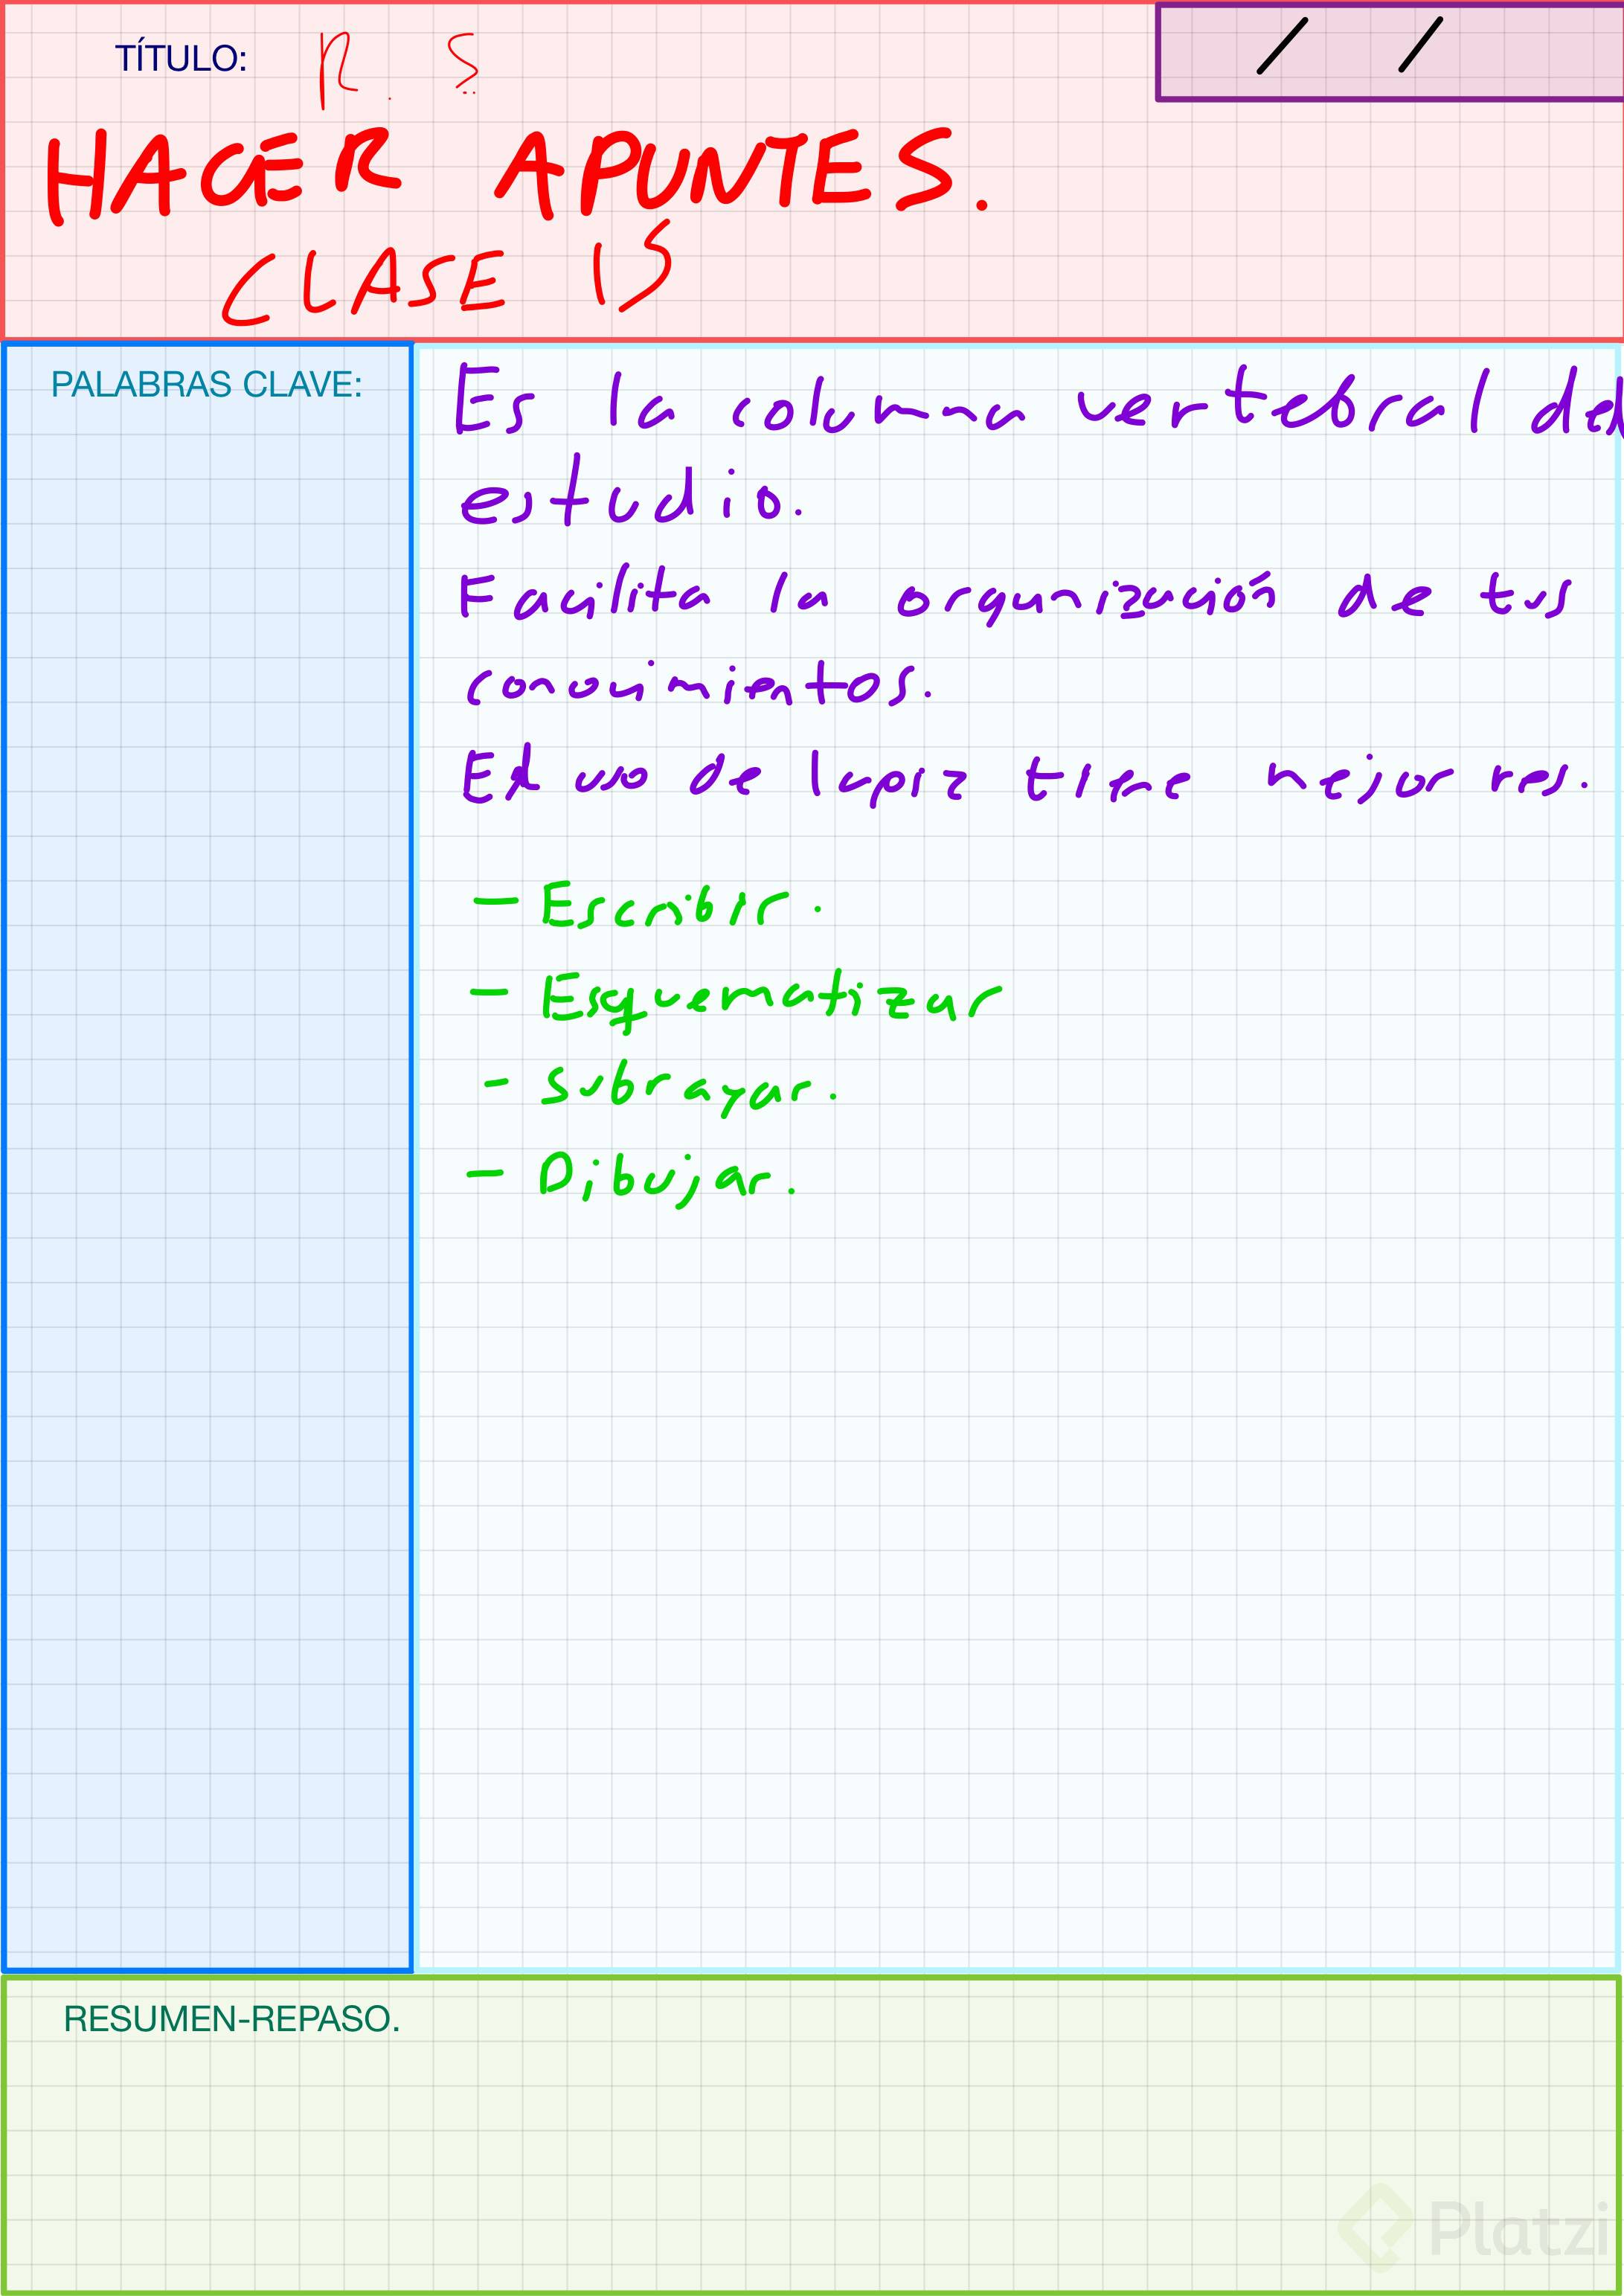 TÍTULO: R. S
/ /
HACER APUNTES.
CLASE 15
PALABRAS CLAVE:
Es la columna vertebral del
estudio.
Facilita la organización de tus
conocimientos.
El uso de lapiz tiene mejor res.
- Escribir.
- Esquematizar
- Subrayar.
- Dibujar.
RESUMEN-REPASO.
Platzi